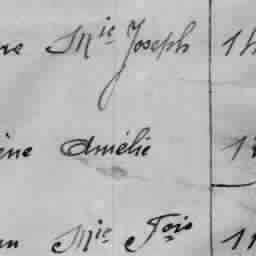 Mie Joseph 1
ène Amélie 1
Mie Fois 1